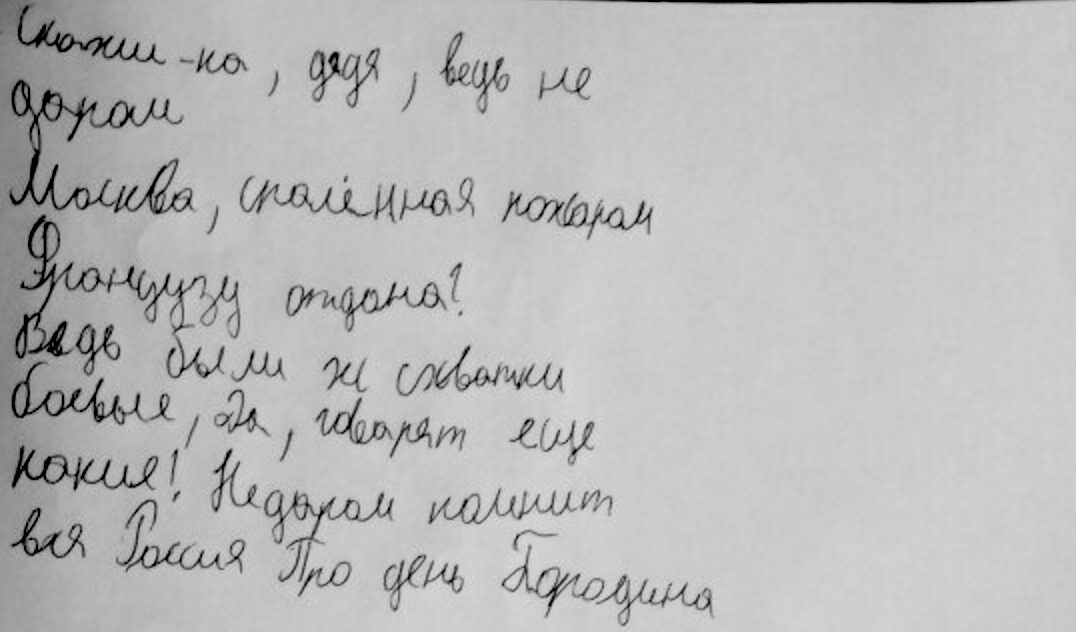 Скажи-ка, дядя, ведь не
даром
Москва, спалённая пожаром
Французу отдана?
Ведь были ж схватки
боевые, Да, говорят еще
какие! Недаром помнит
вся Россия Про день Бородина